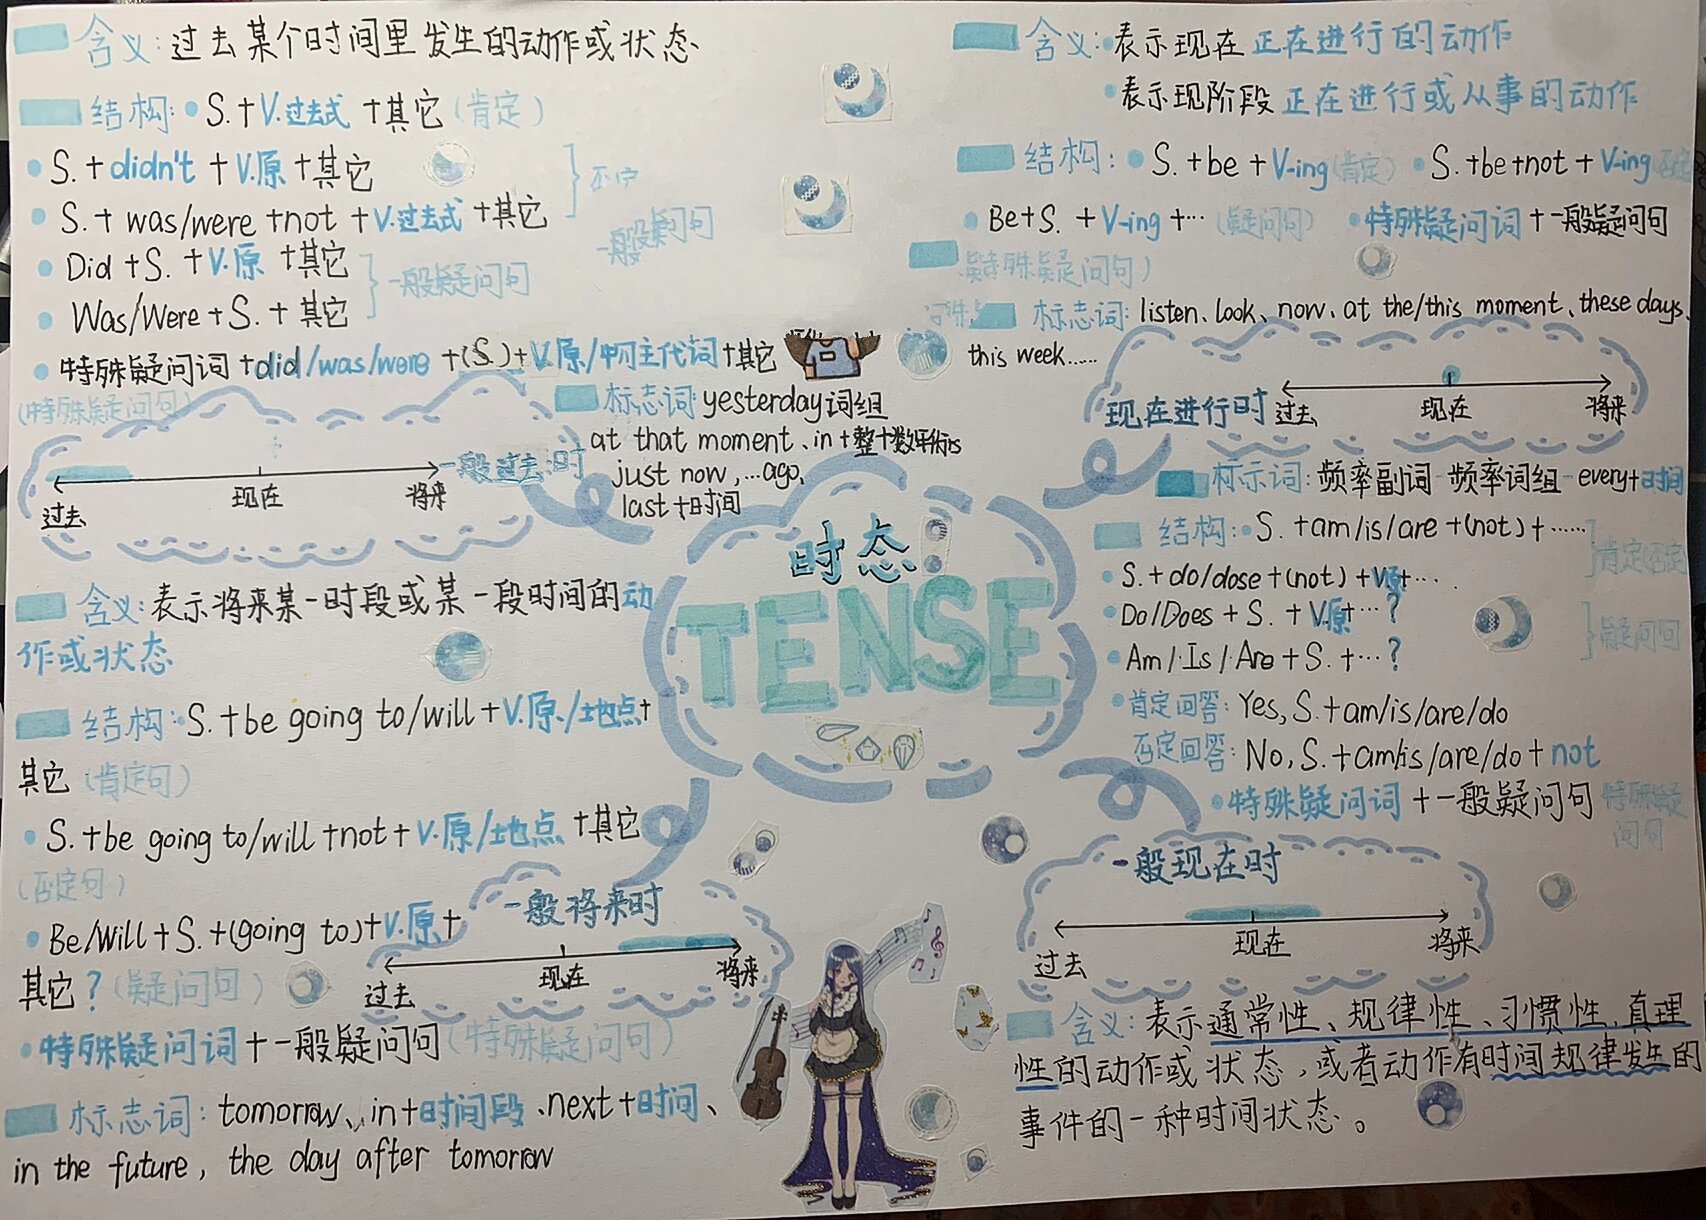 含义:过去某个时间里发生的动作或状态
结构:S.+V.过去式+其它(肯定)
S.+didn't+V.原+其它
否定
S.+was/were+not+V.过去式+其它
一般疑问句
Did+S.+V.原+其它
一般疑问句
Was/Were+S.+其它
特殊疑问词+did/was/were+(S.)+V.原/物主代词+其它
(特殊疑问句)
标志词:yesterday词组
at that moment、in+整十数年
just now,…ago,
last+时间
一般过去时
过去
现在
将来
含义:表示现在正在进行的动作
表示现阶段正在进行或从事的动作
结构:S.+be+V-ing(肯定) S.+be+not+V-ing(否定
Be+S.+V-ing+…(疑问句) 特殊疑问词+一般疑问句
特殊疑问句)
标志词:listen、look、now、at the/this moment、these days、
this week……
现在进行时
过去
现在
将来
时态
TENSE
含义:表示将来某一时段或某一段时间的动
作或状态
结构:S.+be going to/will+V.原/地点+
其它(肯定句)
S.+be going to/will+not+V.原/地点+其它
(否定句)
Be/Will+S.+(going to)+V.原+
其它?(疑问句)
特殊疑问词+一般疑问句(特殊疑问句)
标志词:tomorrow、in+时间段、next+时间、
in the future, the day after tomorrow
一般将来时
过去
现在
将来
标示词:频率副词 频率词组 every+时间
结构:S.+am/is/are+(not)+……
S.+do/dose+(not)+V原+…
肯定否定
Do/Does+S.+V.原+…?
Am/Is/Are+S.+…?
疑问句
肯定回答:Yes,S.+am/is/are/do
否定回答:No,S.+am/is/are/do+not
特殊疑问词+一般疑问句 特殊疑
问句
一般现在时
过去
现在
将来
含义:表示通常性、规律性、习惯性、真理
性的动作或状态,或者动作有时间规律发生的
事件的一种时间状态。